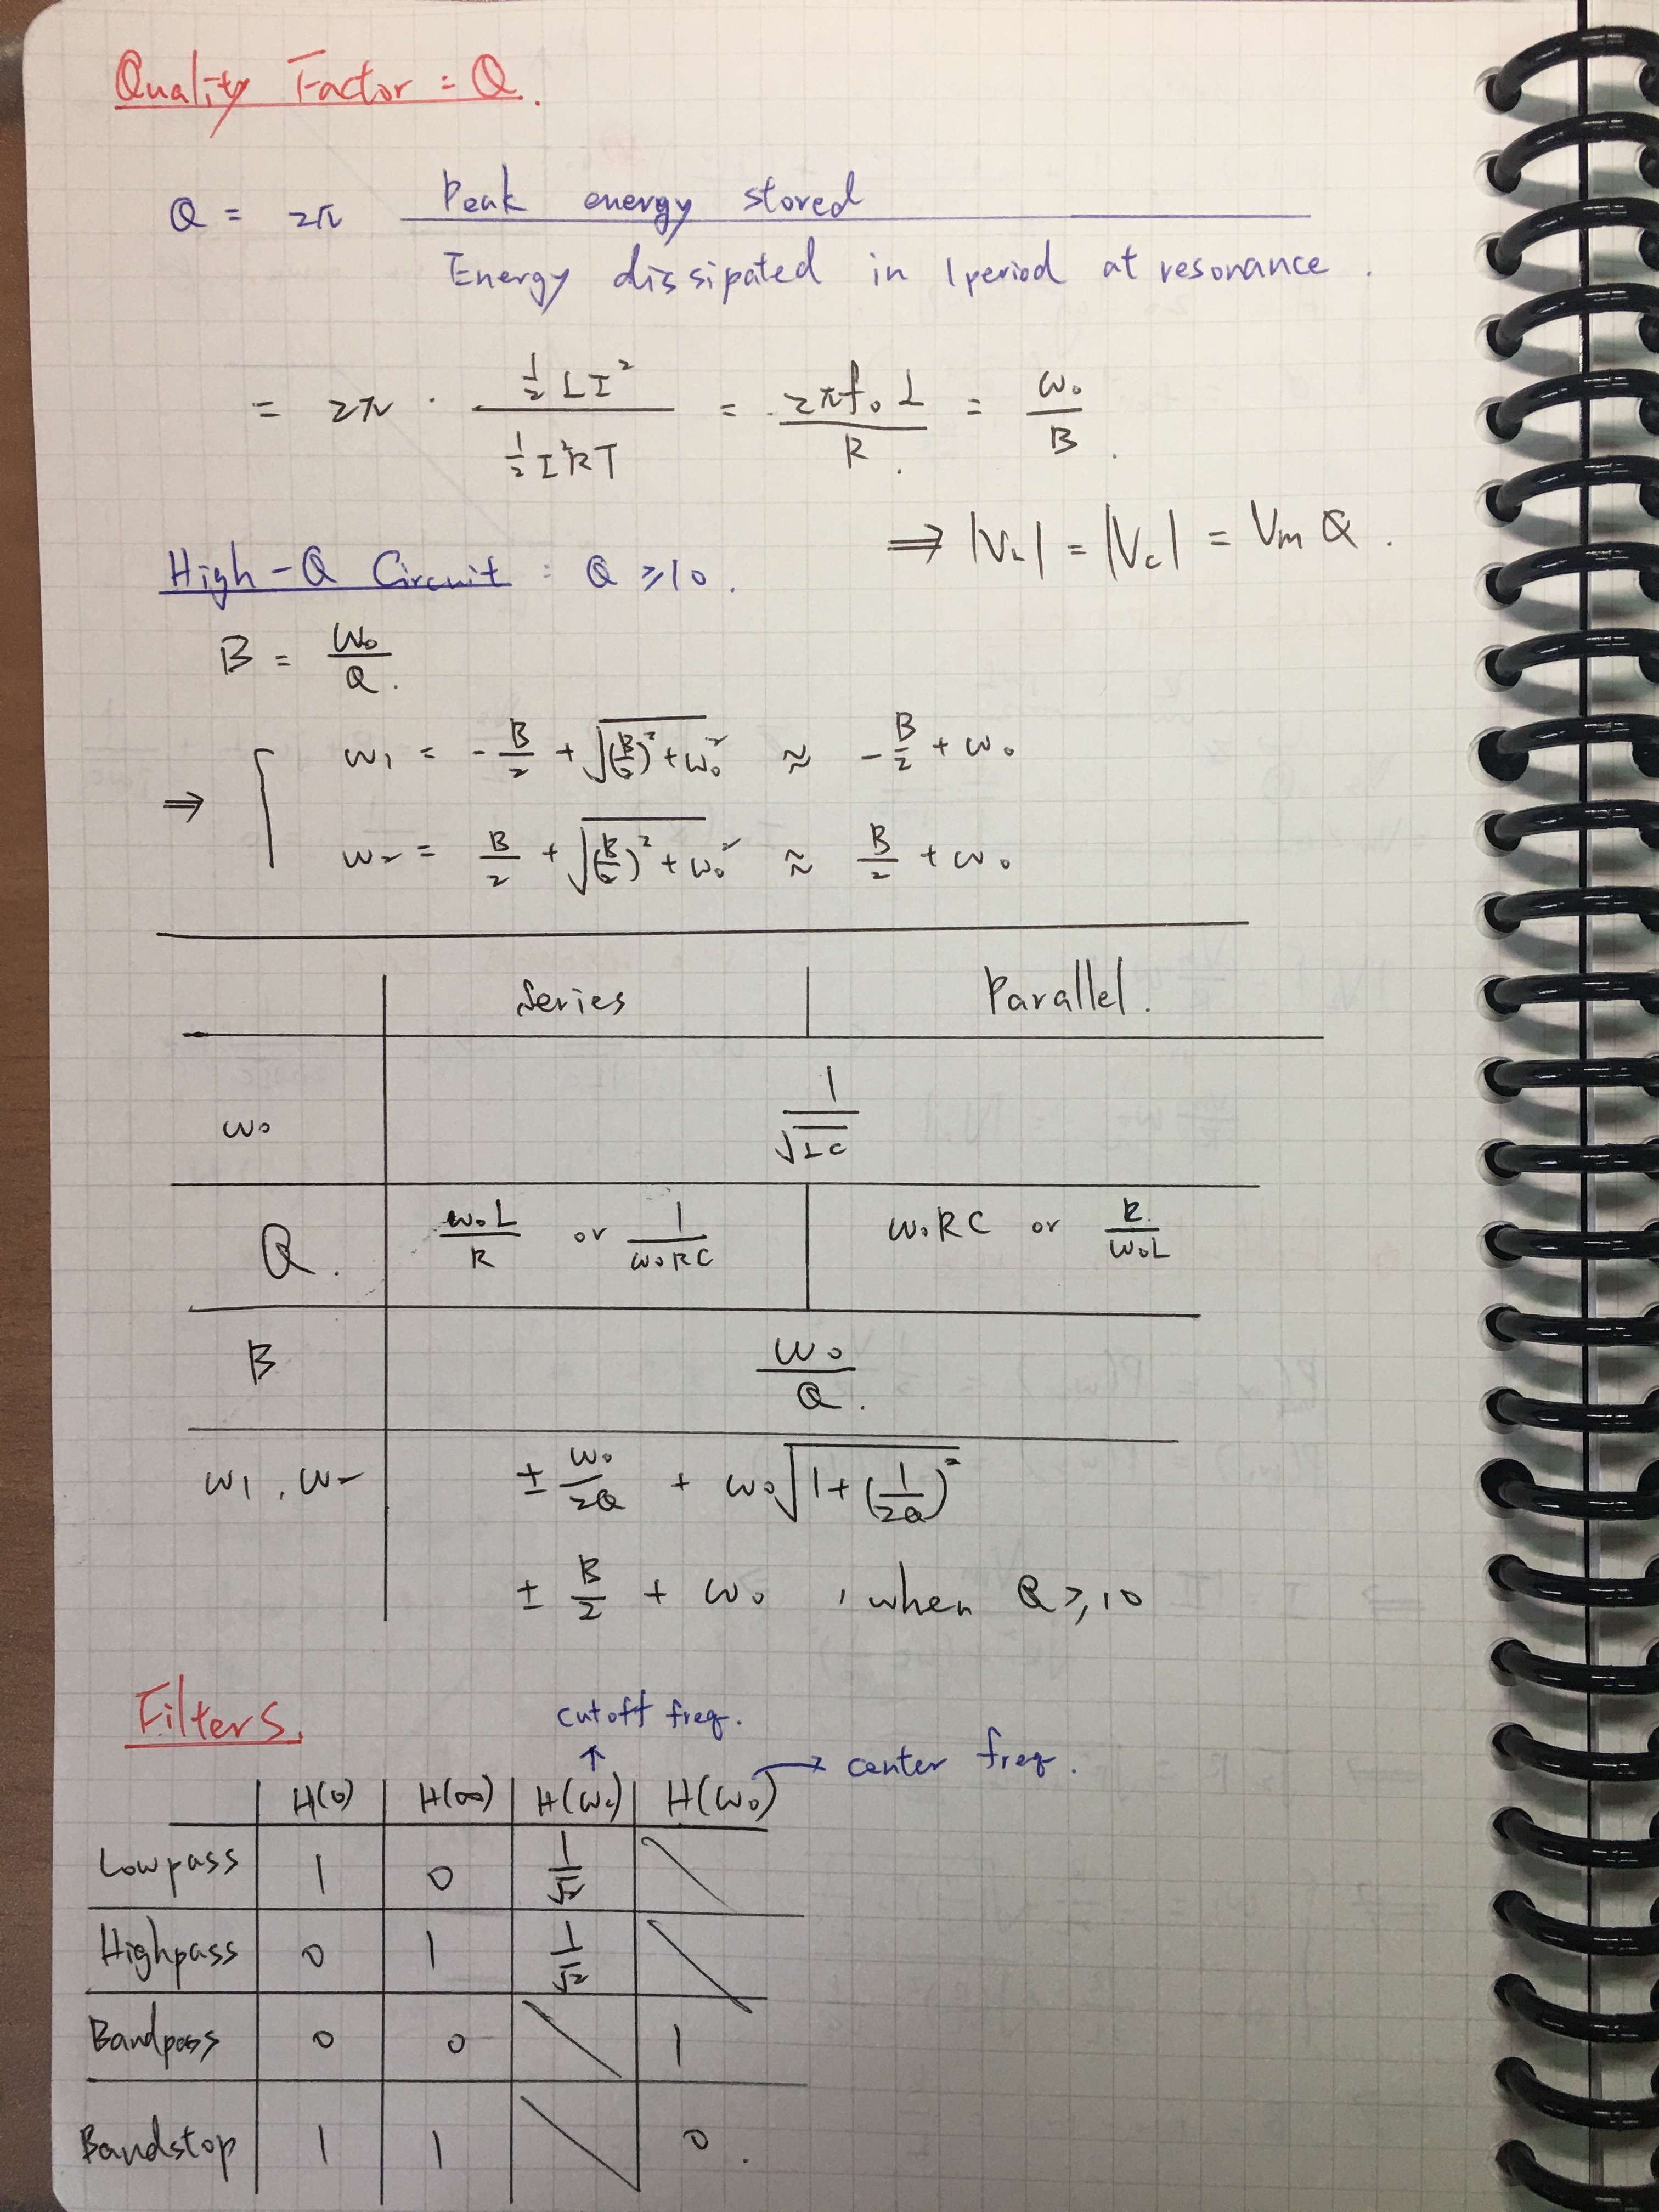 Quality Factor = Q.
Q = 2π Peak energy stored / Energy dissipated in 1 period at resonance.
= 2π · (½ L I²) / (½ I² R T) = 2πf₀ L / R. = ω₀ / B.
⇒ |V_L| = |V_c| = V_m Q.
High-Q Circuit : Q ≥ 10.
B = ω₀ / Q.
⇒ { ω₁ = -B/2 + √((B/2)² + ω₀²) ≈ -B/2 + ω₀
ω₂ = B/2 + √((B/2)² + ω₀²) ≈ B/2 + ω₀
Series | Parallel.
ω₀ | 1/√(LC)
Q. | ω₀L/R or 1/(ω₀RC) | ω₀RC or R/(ω₀L)
B | ω₀/Q.
ω₁, ω₂ | ± ω₀/2Q + ω₀√(1 + (1/2Q)²)
± B/2 + ω₀, when Q ≥ 10
Filters.
cutoff freq.
↑ → center freq.
H(0) | H(∞) | H(ω_c) | H(ω₀)
Lowpass | 1 | 0 | 1/√2 | \
Highpass | 0 | 1 | 1/√2 | \
Bandpass | 0 | 0 | \ | 1
Bandstop | 1 | 1 | \ | 0.